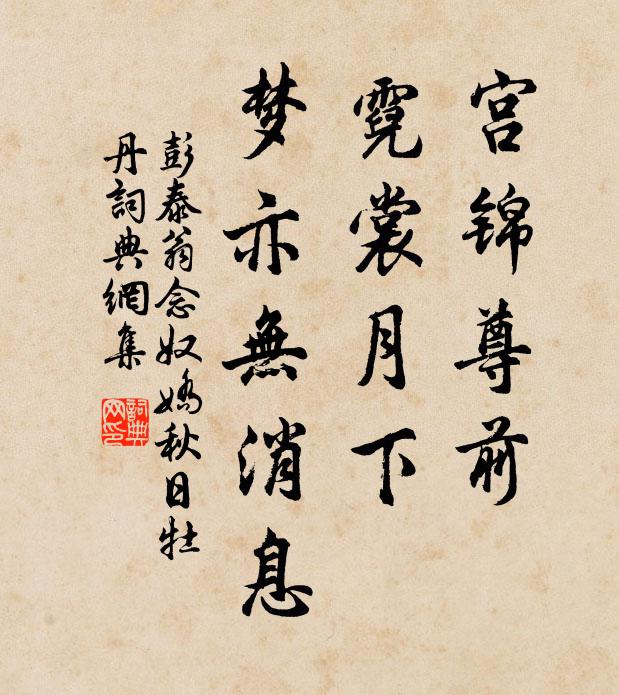 宫锦尊前
霓裳月下
梦亦無消息
彭泰翁念奴嬌秋日牡
丹詞典網集
詞典
网印